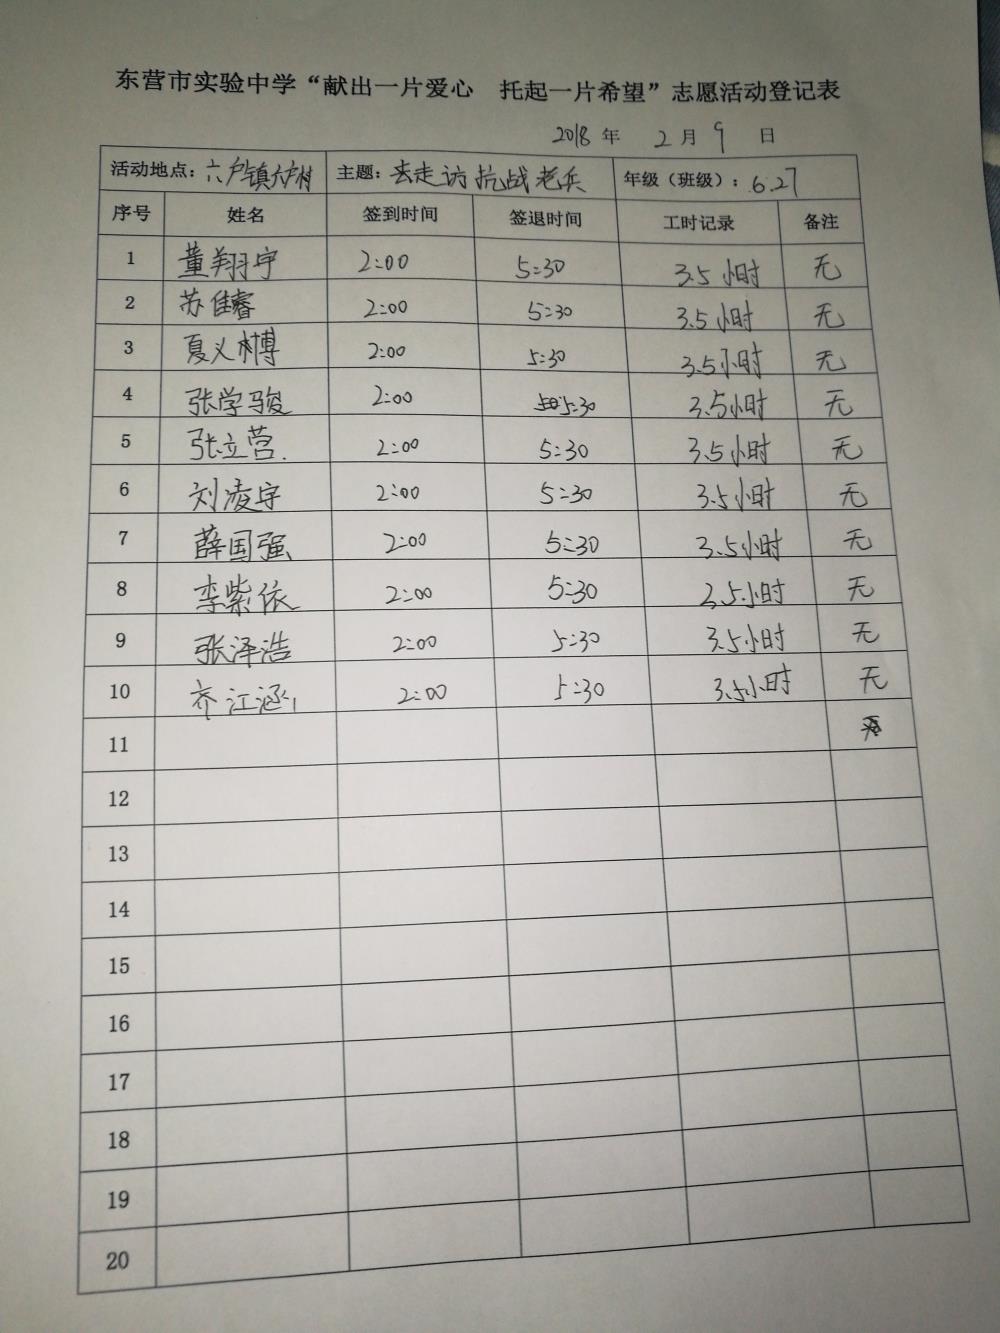 东营市实验中学“献出一片爱心 托起一片希望”志愿活动登记表
2018 年 2 月 9 日
活动地点：六户镇六户村 主题：去走访抗战老兵 年级（班级）：6.27
序号 姓名 签到时间 签退时间 工时记录 备注
1 董翔宇 2:00 5:30 3.5小时 无
2 苏佳睿 2:00 5:30 3.5小时 无
3 夏义博 2:00 5:30 3.5小时 无
4 张学骏 2:00 5:30 3.5小时 无
5 张立营 2:00 5:30 3.5小时 无
6 刘凌宇 2:00 5:30 3.5小时 无
7 薛国强 2:00 5:30 3.5小时 无
8 李紫依 2:00 5:30 3.5小时 无
9 张泽浩 2:00 5:30 3.5小时 无
10 齐江涵 2:00 5:30 3.5小时 无
11
12
13
14
15
16
17
18
19
20